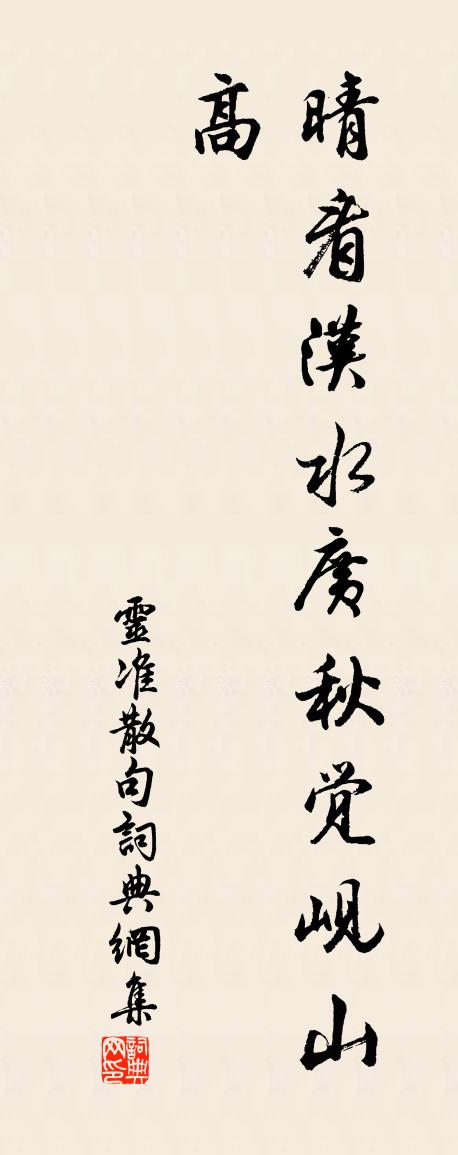 晴看漢水廣秋覺峴山
高
靈准散句詞典網集
詞典網印